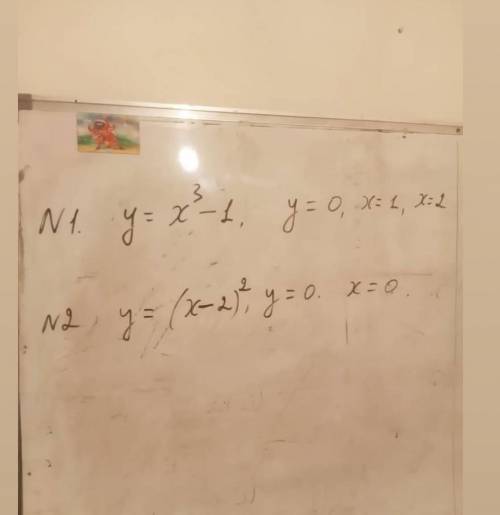 N1. y = x³ - 1, y = 0, x = 1, x = 2
N2. y = (x - 2)², y = 0. x = 0.